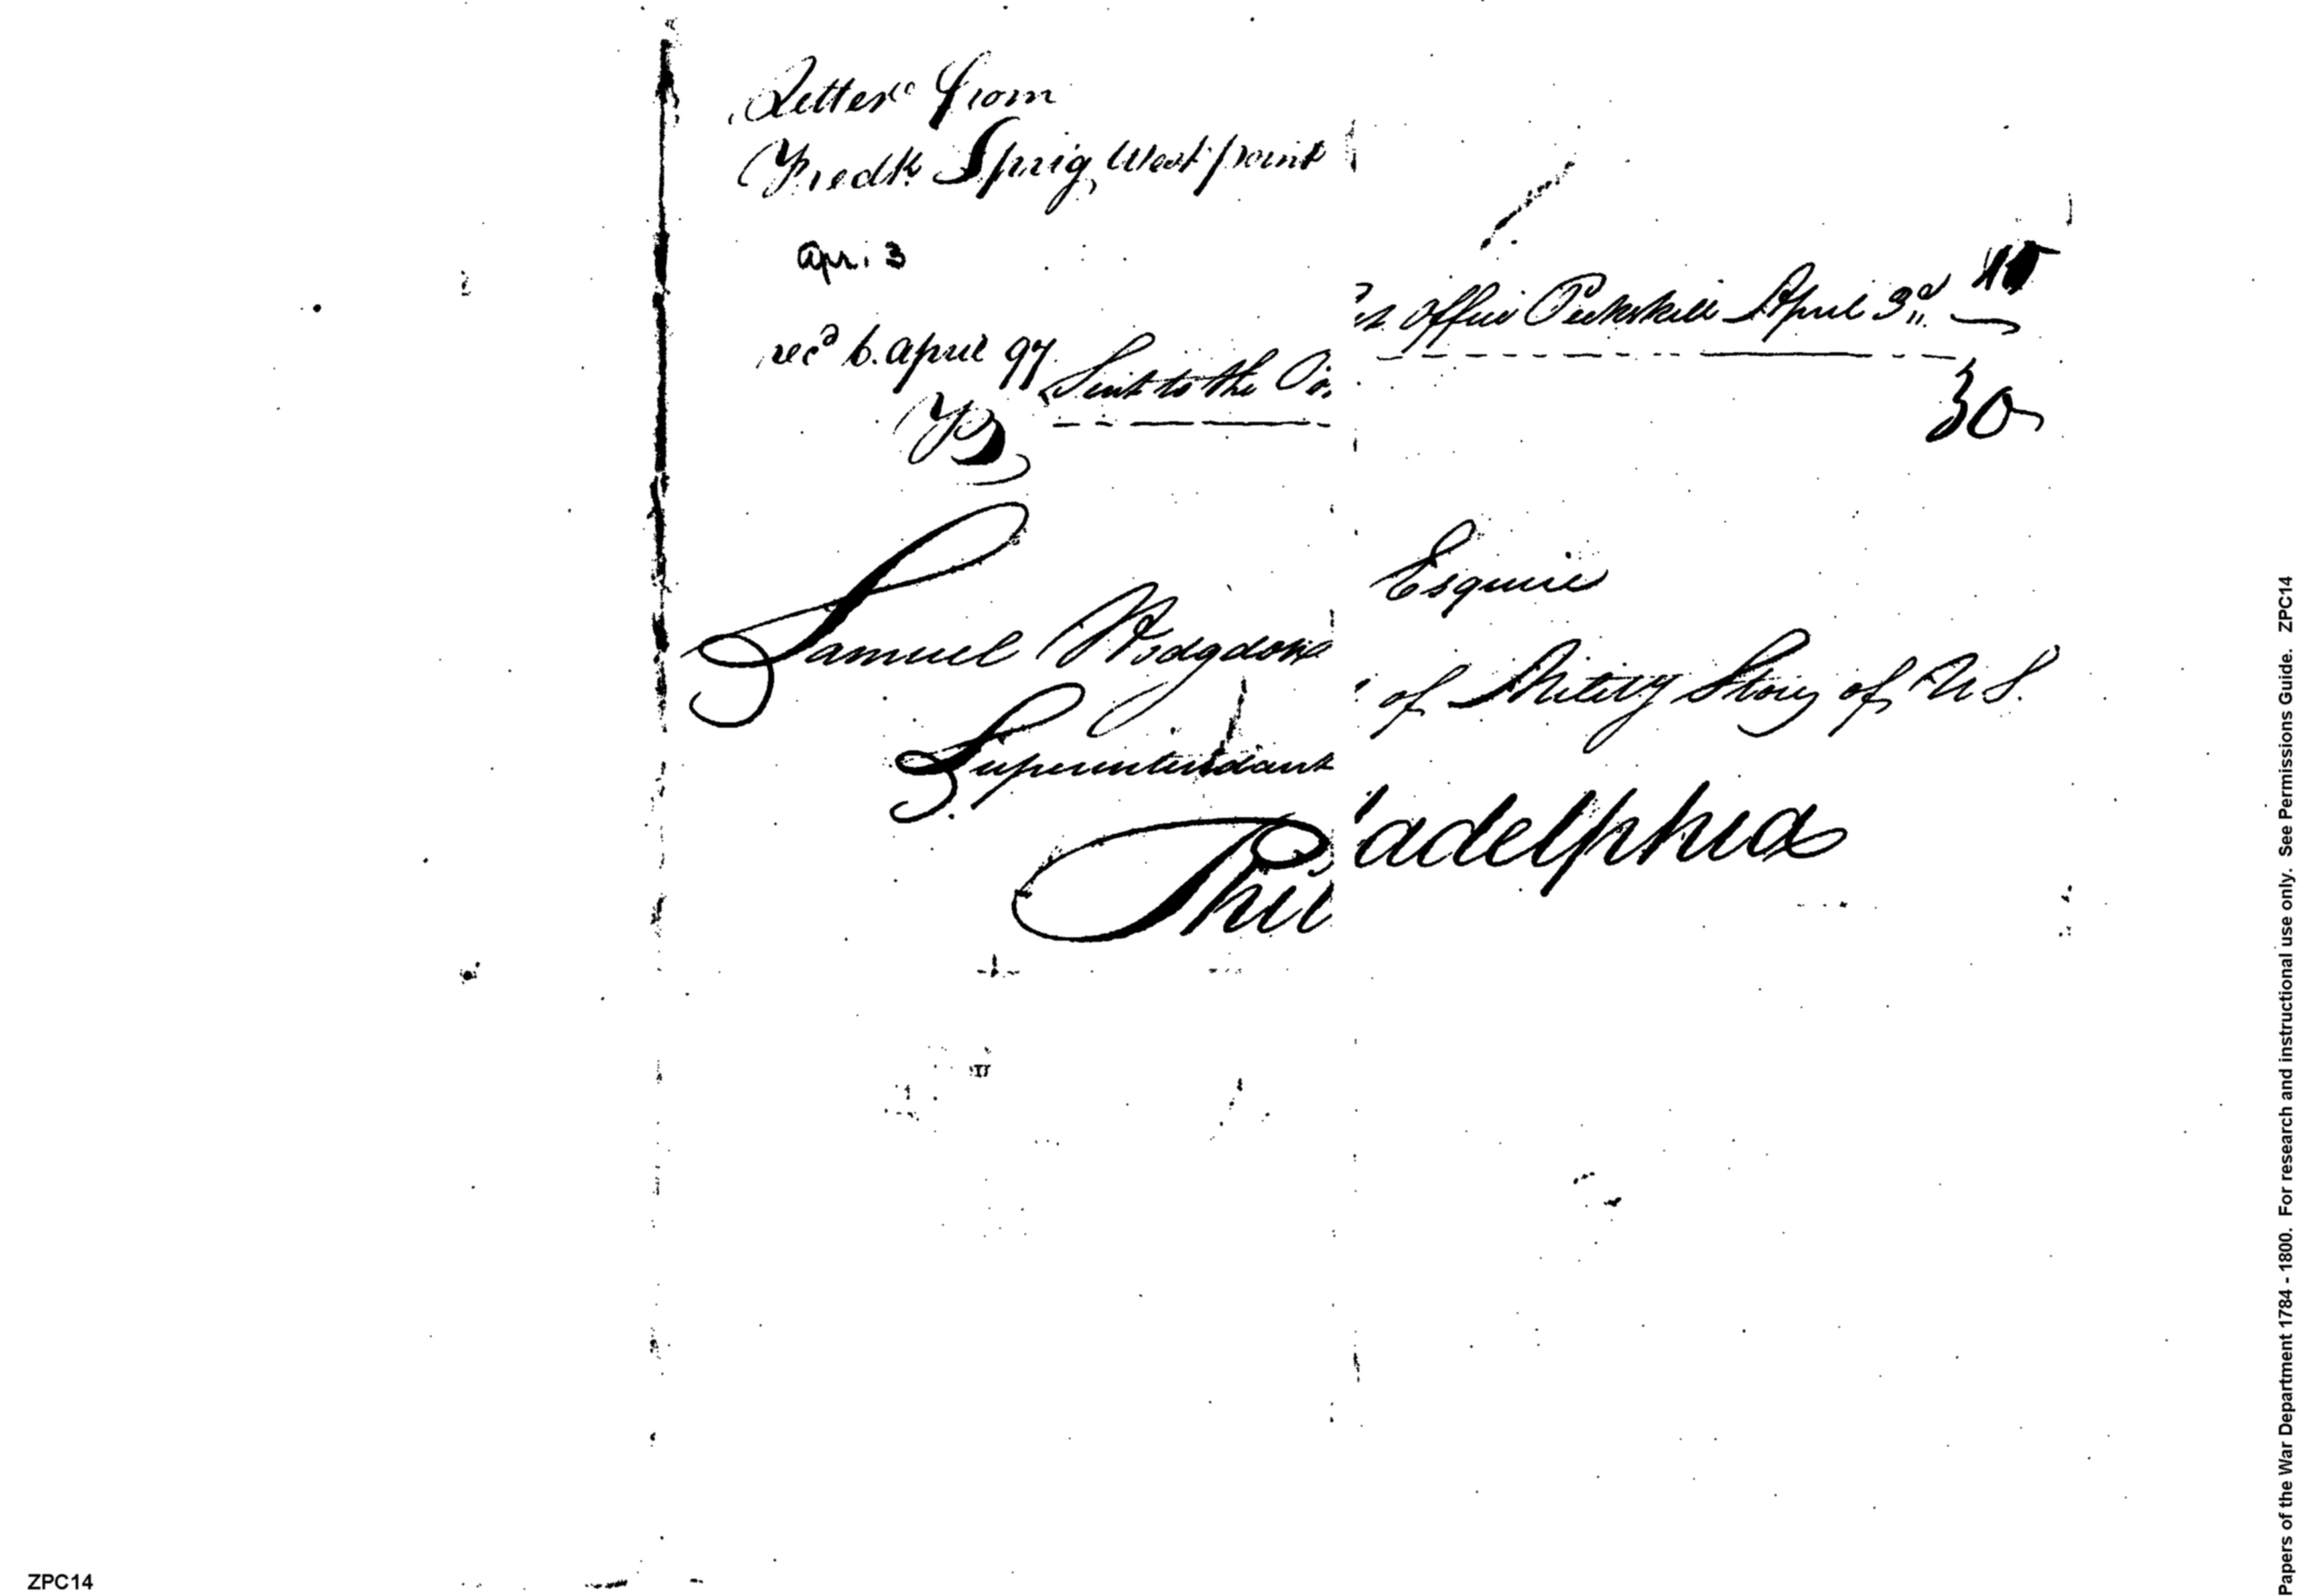 Letter from
Fredk. Sprig, West point
Apr. 3
recd 6. april 97
Sent to the Po
st Office Peekskill April 3d
30
Samuel Hodgdon Esquire
Superintendant of Mility Stores of U S.
Philadelphia
ZPC14
Papers of the War Department 1784 - 1800. For research and instructional use only. See Permissions Guide. ZPC14